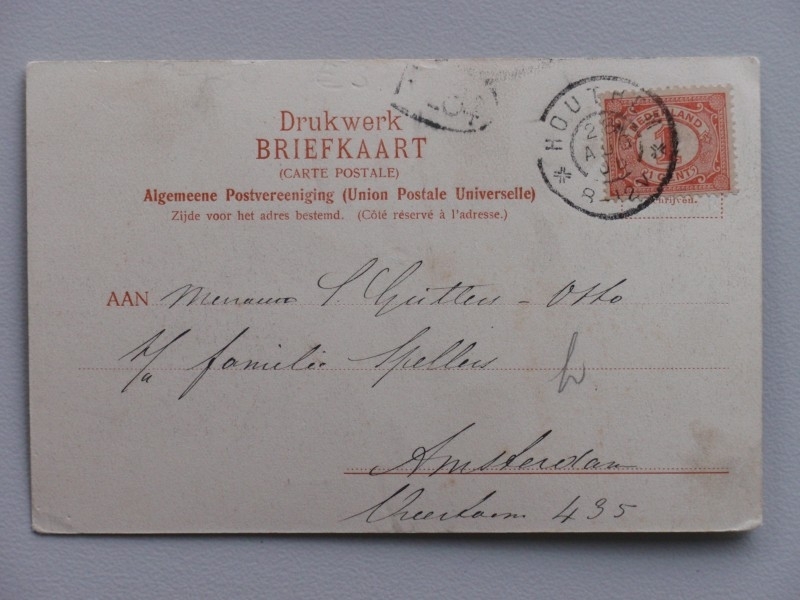 Drukwerk
BRIEFKAART
(CARTE POSTALE)
Algemeene Postvereeniging (Union Postale Universelle)
Zijde voor het adres bestemd. (Côté réservé à l'adresse.)
NEDERLAND
1
(1 CENT)
HOUT
AAN Mevrouw S. Gütters - Otto
p/a familie Spellers
Amsterdam
435